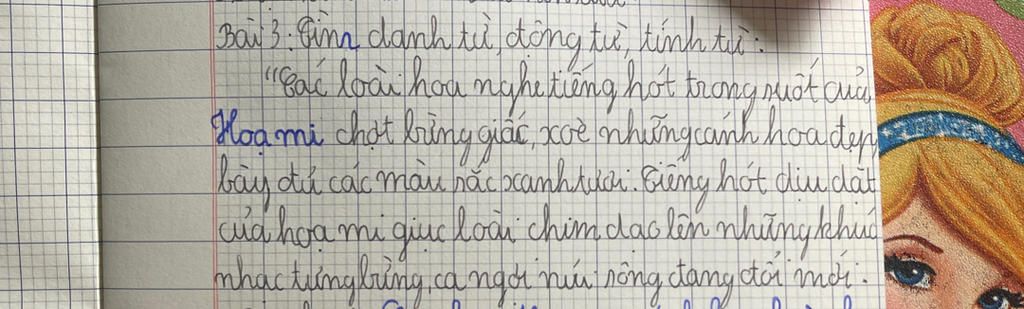 Bài 3: Tìm danh từ, động từ, tính từ:
"Các loài hoa nghe tiếng hót trong suốt của
Hoạ mi chợt bừng giấc, xoè những cánh hoa đẹp
bày đủ các màu sắc xanh tươi. Tiếng hót dìu dặt
của hoạ mi giục loài chim dạo lên những khúc
nhạc tưng bừng, ca ngợi núi sông đang đổi mới.